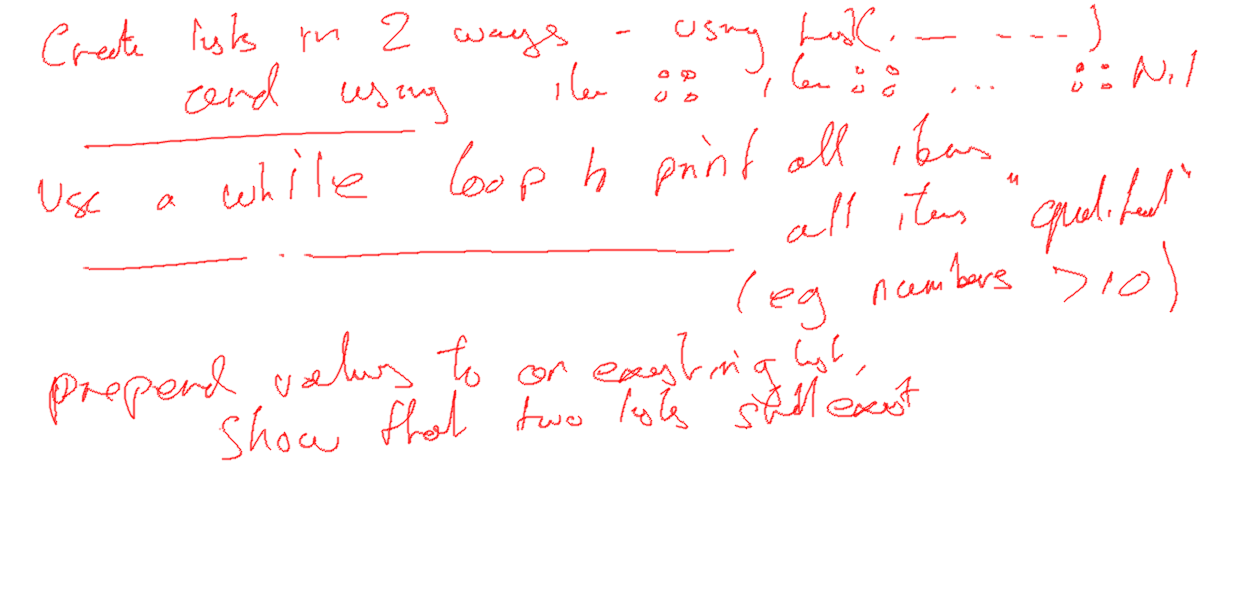 Create lists in 2 ways - using List(. — - - - )
and using item :: item :: ... :: Nil
Use a while loop to print all items
all items "qualified"
(eg numbers >10)
prepend values to an existing list,
show that two lists still exist